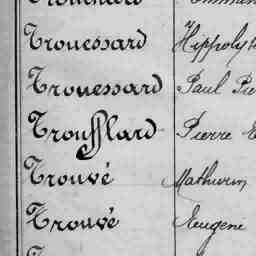 Trouessard Hippoly
Trouessard Paul Pie
Troufflard Pierre E
Trouvé Mathurin
Trouvé Eugène